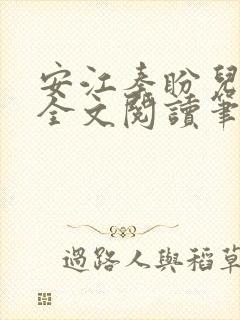 安江秦盼兒
全文閱讀筆
過路人與稻草